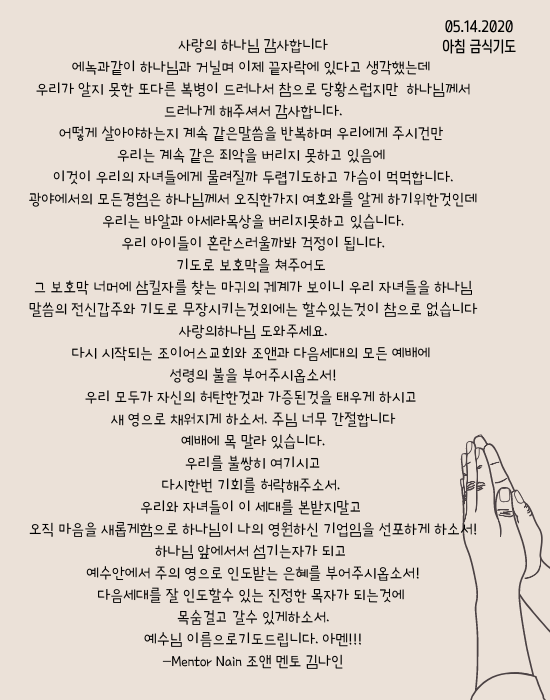 05.14.2020
아침 금식기도
사랑의 하나님 감사합니다
에녹과같이 하나님과 거닐며 이제 끝자락에 있다고 생각했는데
우리가 알지 못한 또다른 복병이 드러나서 참으로 당황스럽지만 하나님께서
드러나게 해주셔서 감사합니다.
어떻게 살아야하는지 계속 같은말씀을 반복하며 우리에게 주시건만
우리는 계속 같은 죄악을 버리지 못하고 있음에
이것이 우리의 자녀들에게 물려질까 두렵기도하고 가슴이 먹먹합니다.
광야에서의 모든경험은 하나님께서 오직한가지 여호와를 알게 하기위한것인데
우리는 바알과 아세라목상을 버리지못하고 있습니다.
우리 아이들이 혼란스러울까봐 걱정이 됩니다.
기도로 보호막을 쳐주어도
그 보호막 너머에 삼킬자를 찾는 마귀의 궤계가 보이니 우리 자녀들을 하나님
말씀의 전신갑주와 기도로 무장시키는것외에는 할수있는것이 참으로 없습니다
사랑의하나님 도와주세요.
다시 시작되는 조이어스교회와 조앤과 다음세대의 모든 예배에
성령의 불을 부어주시옵소서!
우리 모두가 자신의 허탄한것과 가증된것을 태우게 하시고
새 영으로 채워지게 하소서. 주님 너무 간절합니다
예배에 목 말라 있습니다.
우리를 불쌍히 여기시고
다시한번 기회를 허락해주소서.
우리와 자녀들이 이 세대를 본받지말고
오직 마음을 새롭게함으로 하나님이 나의 영원하신 기업임을 선포하게 하소서!
하나님 앞에서서 섬기는자가 되고
예수안에서 주의 영으로 인도받는 은혜를 부어주시옵소서!
다음세대를 잘 인도할수 있는 진정한 목자가 되는것에
목숨걸고 갈수 있게하소서.
예수님 이름으로기도드립니다. 아멘!!!
-Mentor Nain 조앤 멘토 김나인